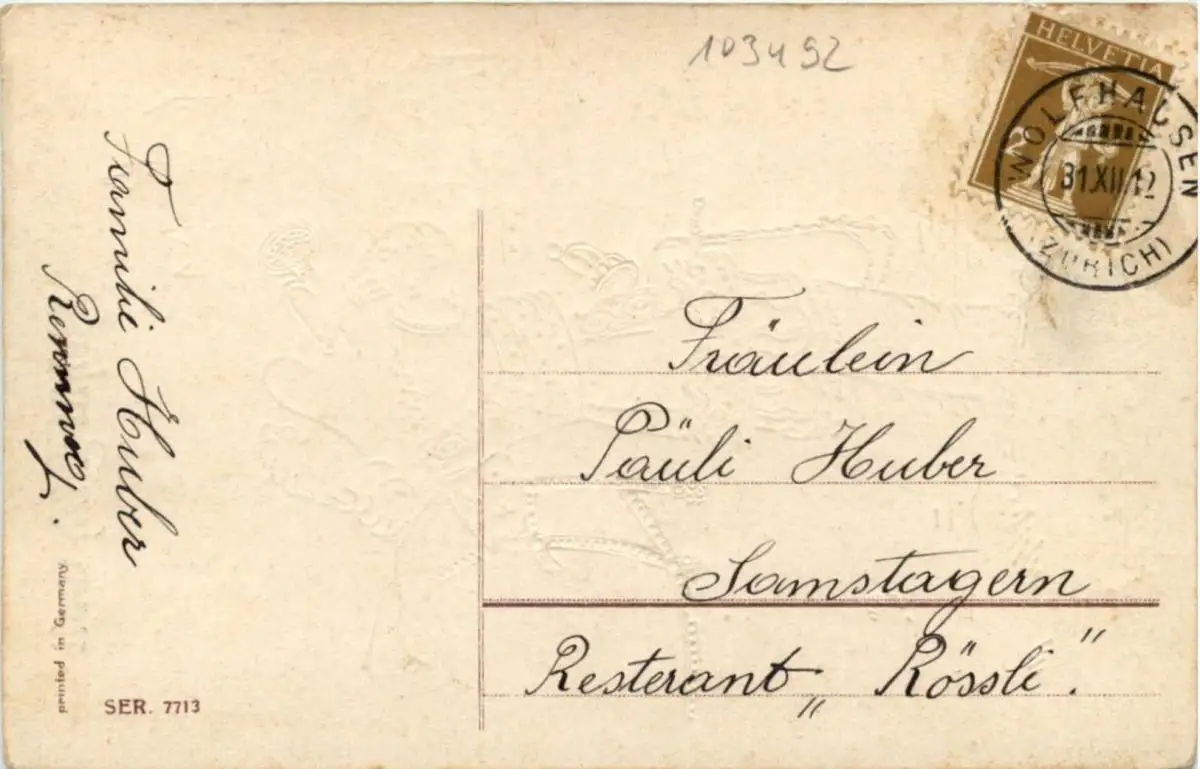 103492
HELVETIA
WOLFHAUSEN
31.XII.12
(ZÜRICH)
Familie Huber
Fräulein
Päuli Huber
Samstagern
Resterant „Rössli."
printed in Germany
SER. 7713